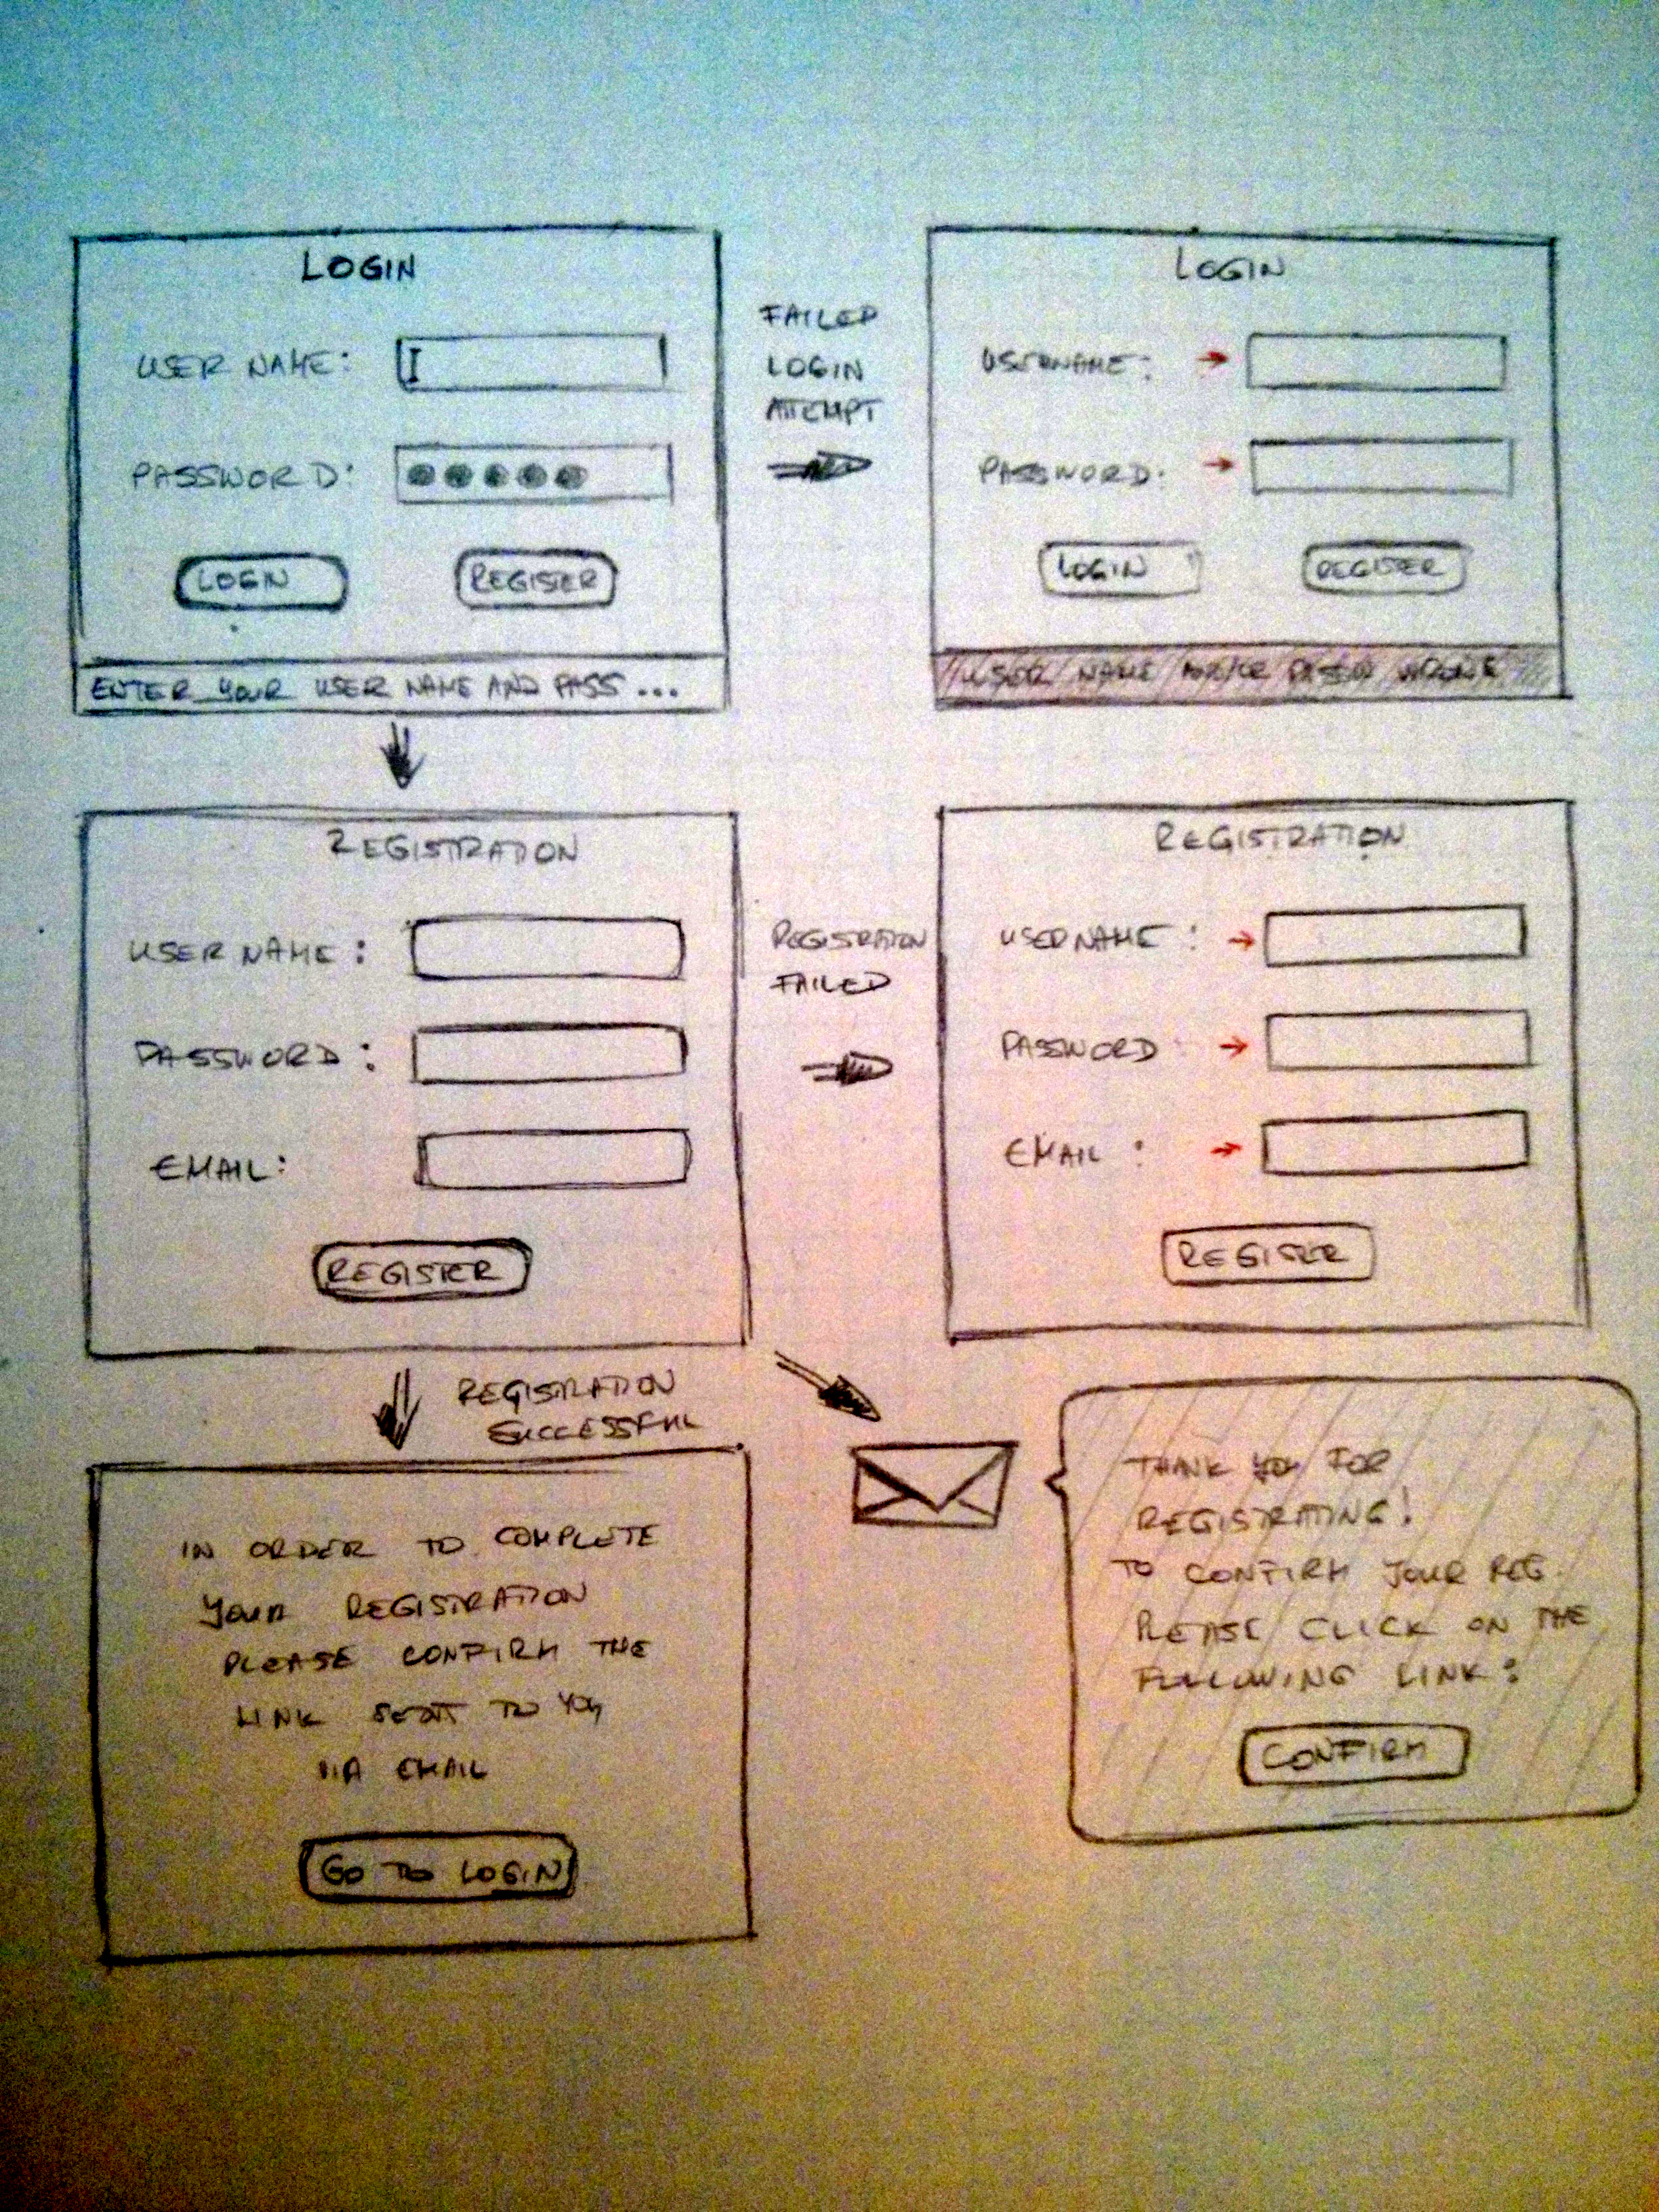 LOGIN
USER NAME:
PASSWORD:
LOGIN
REGISTER
ENTER YOUR USER NAME AND PASS ...
FAILED
LOGIN
ATTEMPT
LOGIN
USERNAME:
PASSWORD:
LOGIN
REGISTER
USER NAME WRONG
REGISTRATION
USER NAME:
PASSWORD:
EMAIL:
REGISTER
REGISTRATION
FAILED
REGISTRATION
USERNAME:
PASSWORD
EMAIL:
REGISTER
REGISTRATION
SUCCESSFUL
IN ORDER TO COMPLETE
YOUR REGISTRATION
PLEASE CONFIRM THE
LINK SENT TO YOU
VIA EMAIL
GO TO LOGIN
THANK YOU FOR
REGISTRATING!
TO CONFIRM YOUR REG.
PLEASE CLICK ON THE
FOLLOWING LINK:
CONFIRM